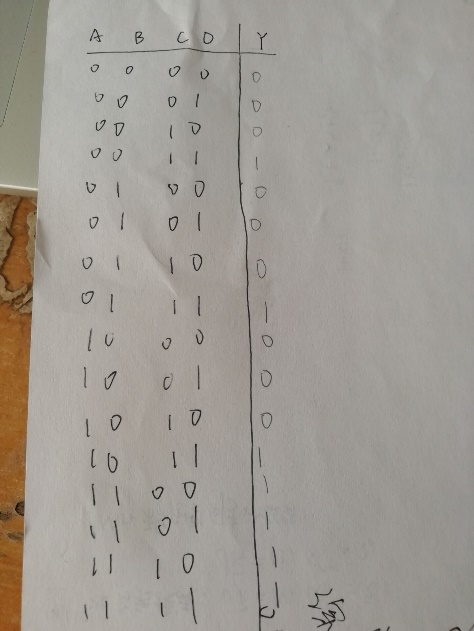 A B C D Y
0 0 0 0 0
0 0 0 1 0
0 0 1 0 0
0 0 1 1 1
0 1 0 0 0
0 1 0 1 0
0 1 1 0 0
0 1 1 1 1
1 0 0 0 0
1 0 0 1 0
1 0 1 0 0
1 0 1 1 1
1 1 0 0 1
1 1 0 1 1
1 1 1 0 1
1 1 1 1